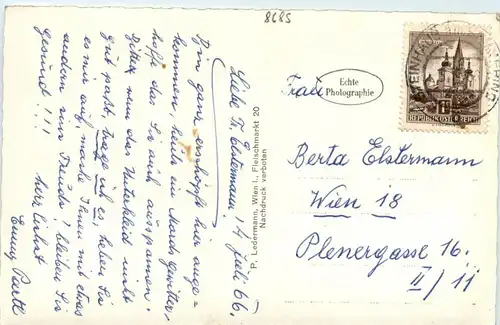 8685
Liebe Fr. Elstermann! 14 Juli 66.
Bin ganz erschöpft hier ange-
kommen. heute ein Mords Gewitter,
hoffe das Sie auch ausspannen.
Bitte wenn das Unterkleid nicht
gut paßt, trage ich es, heben Sie
es mir auf, mache Ihnen mit etwas
andern eine Freude! bleiben Sie
gesund!!!
herzlichst
Emmy Bartl
P. Ledermann, Wien I., Fleischmarkt 20
Nachdruck verboten
Echte
Photographie
REPUBLIK ÖSTERREICH
Frau
Berta Elstermann
Wien 18
Plenergasse 16.
II/11